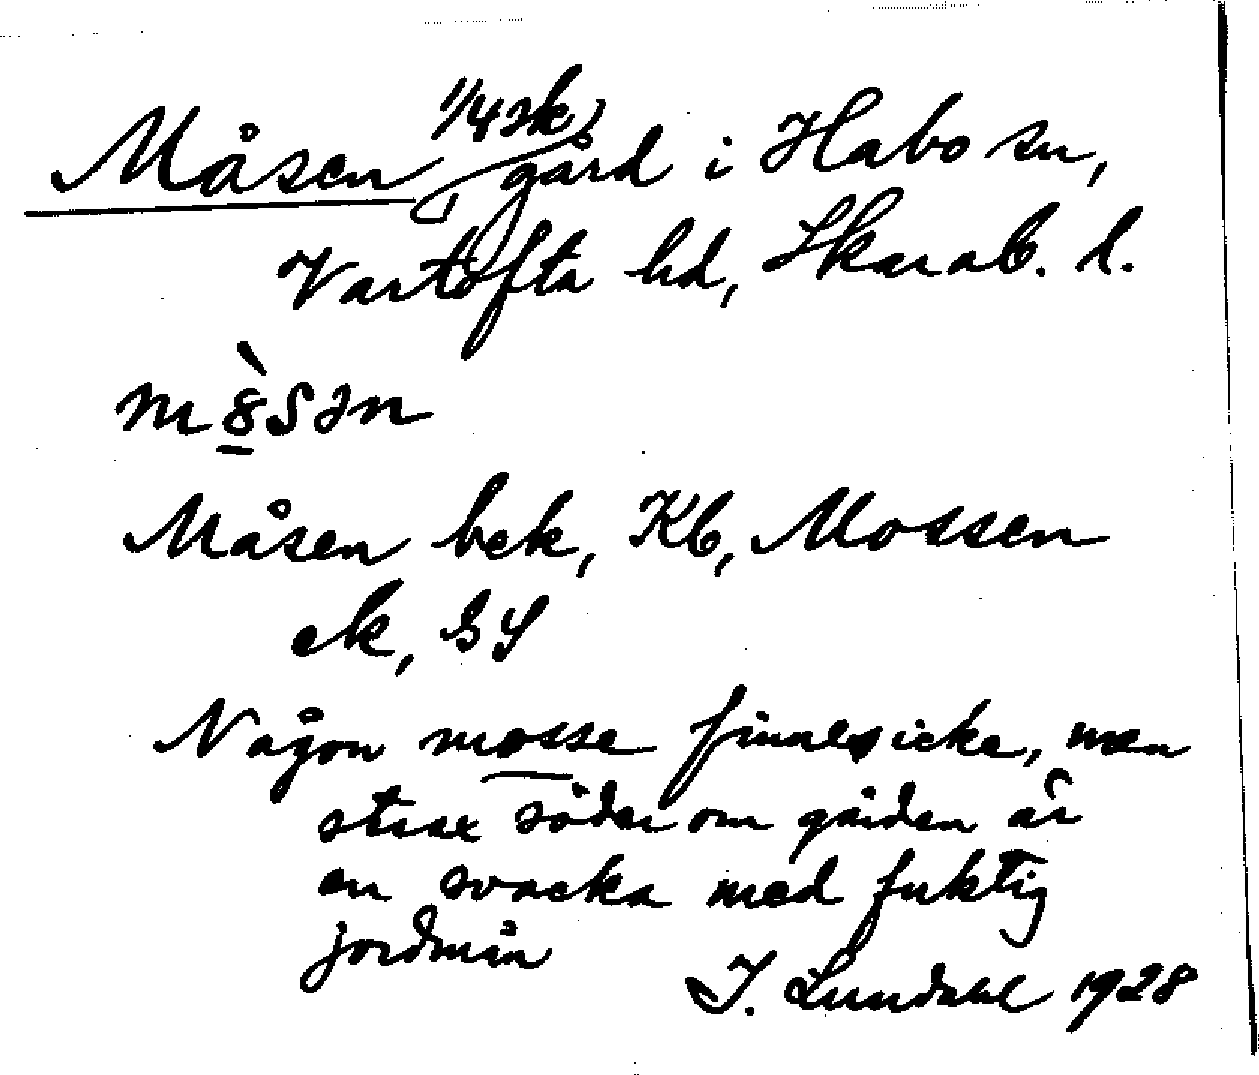 Måsen, 1/4 sk, gård i Habo sn,
Vartofta hd, Skarab. l.
m8̲̀sən
Måsen bek, Kb, Mossen
ek, GS
Någon mosse finnes icke, men
strax söder om gården är
en svacka med fuktig
jordmån
I. Lundahl 1928